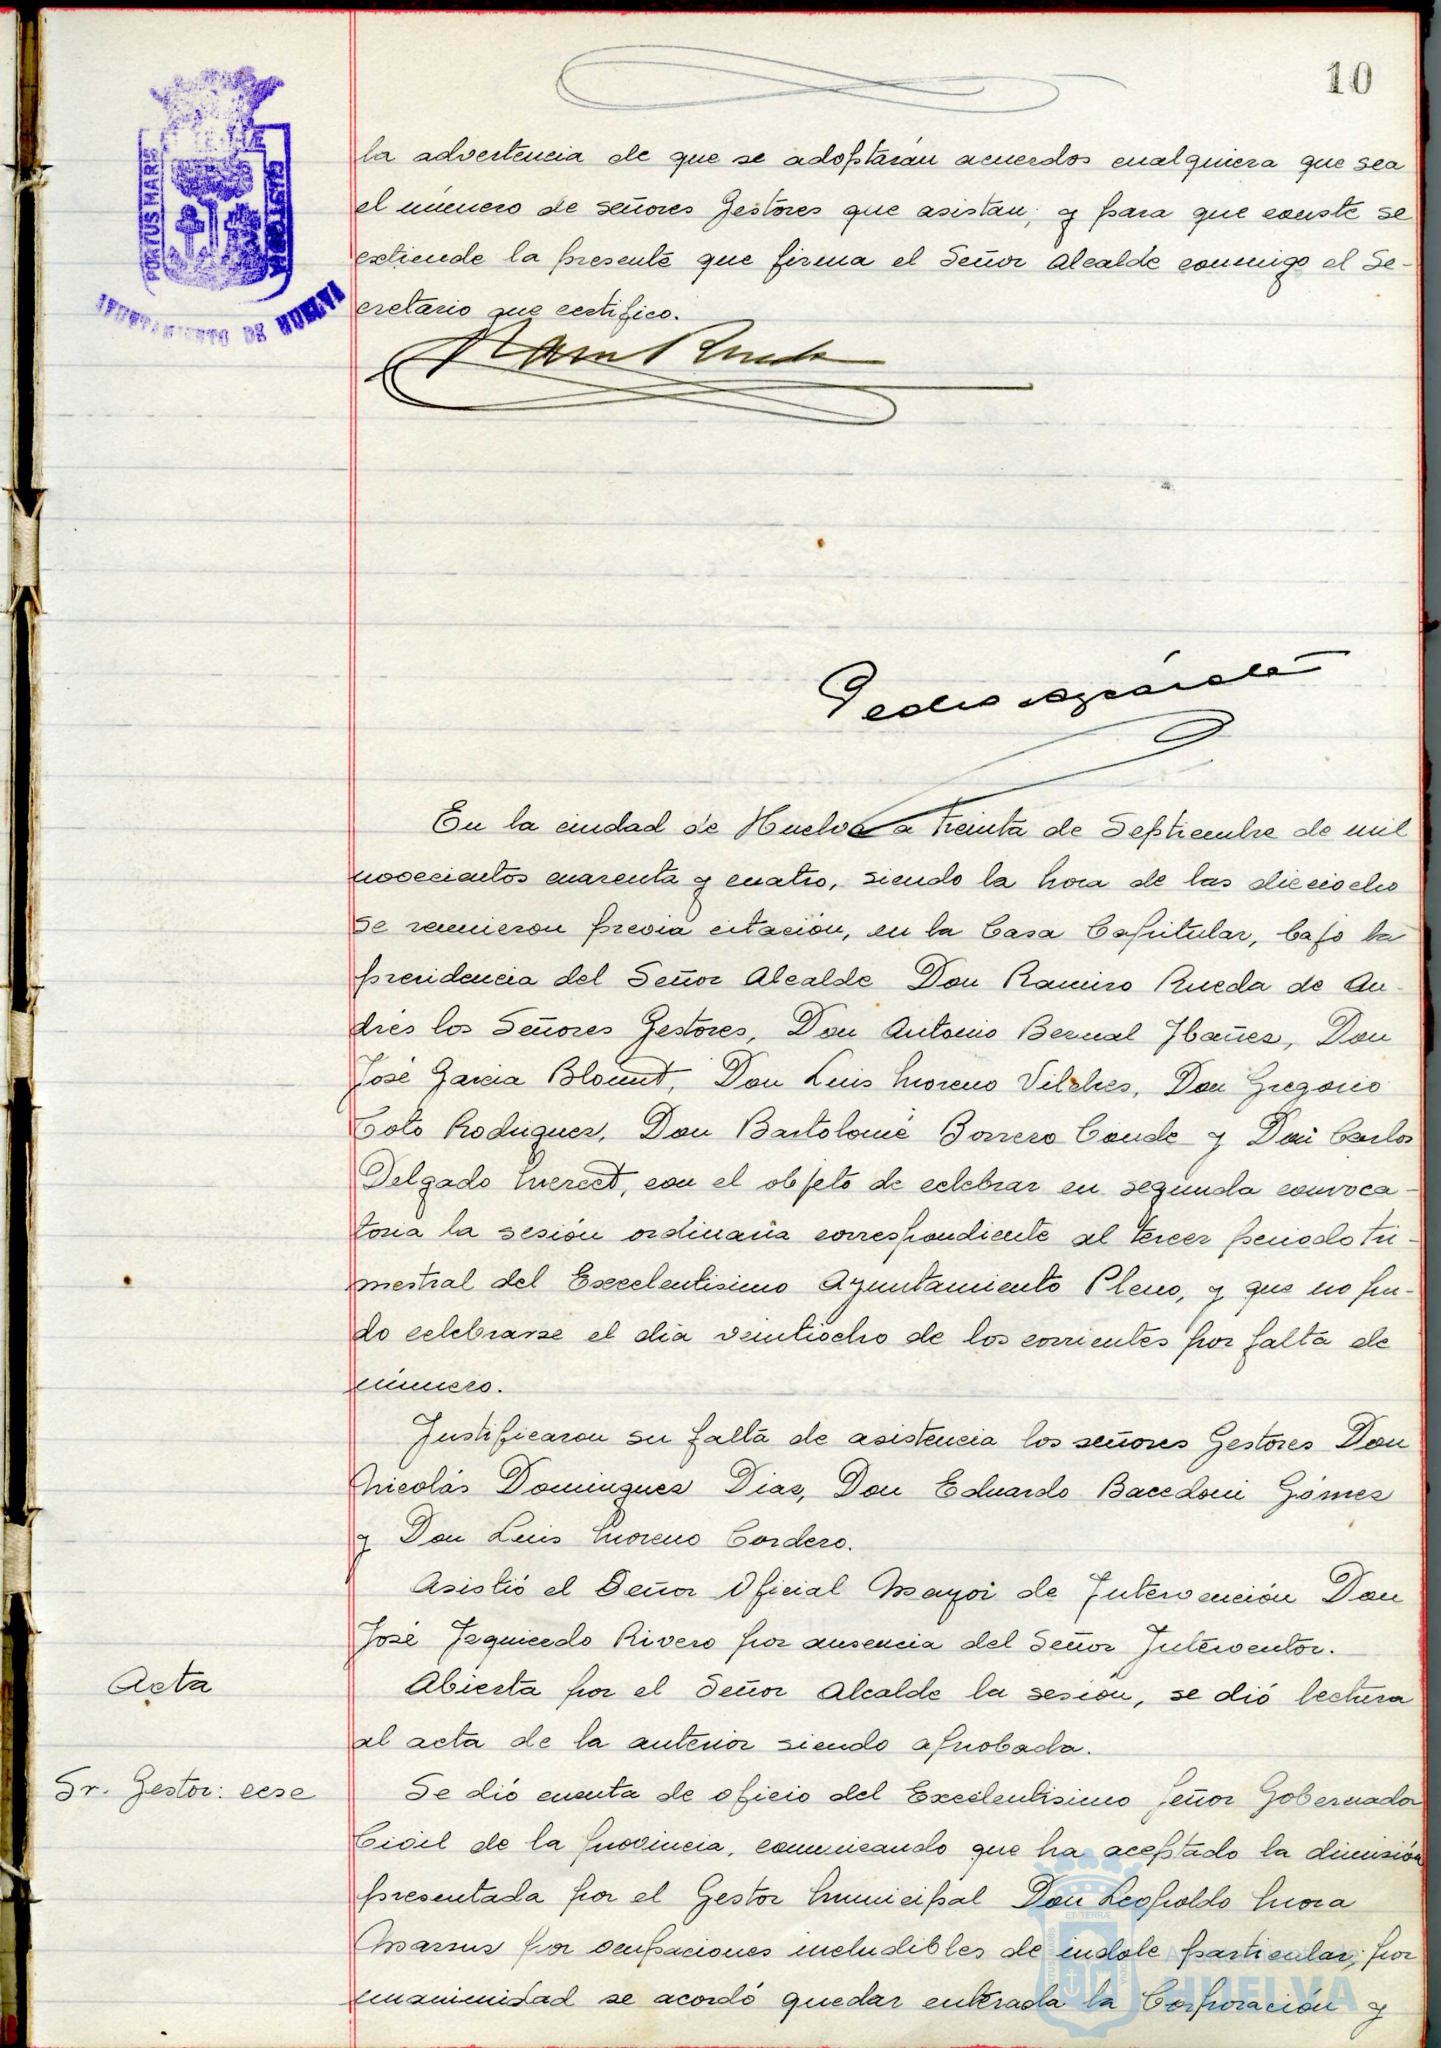 10
PORTUS MARIS
CUSTODIA
AYUNTAMIENTO DE HUELVA
la advertencia de que se adoptarán acuerdos cualquiera que sea
el número de señores Gestores que asistan; y para que conste se
extiende la presente que firma el Señor Alcalde conmigo el Se-
cretario que certifico.
Ram Rueda
Pedro Azcárate
En la ciudad de Huelva a treinta de Septiembre de mil
novecientos cuarenta y cuatro, siendo la hora de las dieciocho
se reunieron previa citación, en la Casa Capitular, bajo la
presidencia del Señor Alcalde Don Ramiro Rueda de An-
drés los Señores Gestores, Don Antonio Bernal Ibañez, Don
José Garcia Blount, Don Luis Moreno Vilches, Don Gregorio
Coto Rodriguez, Don Bartolomé Borrero Conde y Don Carlos
Delgado Merect, con el objeto de celebrar en segunda convoca-
toria la sesión ordinaria correspondiente al tercer periodo tri-
mestral del Excelentisimo Ayuntamiento Pleno, y que no pu-
do celebrarse el dia veintiocho de los corrientes por falta de
número.
Justificaron su falta de asistencia los señores Gestores Don
Nicolás Dominguez Diaz, Don Eduardo Bacedoni Gómez
y Don Luis Moreno Cordero.
Asistió el Señor Oficial Mayor de Intervención Don
José Izquierdo Rivero por ausencia del Señor Interventor.
Acta
Abierta por el Señor Alcalde la sesión, se dió lectura
al acta de la anterior siendo aprobada.
Sr. Gestor: cese
Se dió cuenta de oficio del Excelentisimo Señor Gobernador
Civil de la provincia, comunicando que ha aceptado la dimisión
presentada por el Gestor Municipal Don Leopoldo Mora
por ocupaciones ineludibles de indole particular; por
unanimidad se acordó quedar enterada la Corporación y
HUELVA